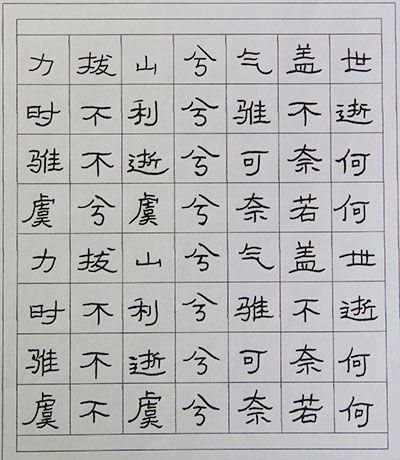 力拔山兮气盖世
时不利兮骓不逝
骓不逝兮可奈何
虞兮虞兮奈若何
力拔山兮气盖世
时不利兮骓不逝
骓不逝兮可奈何
虞不虞兮奈若何